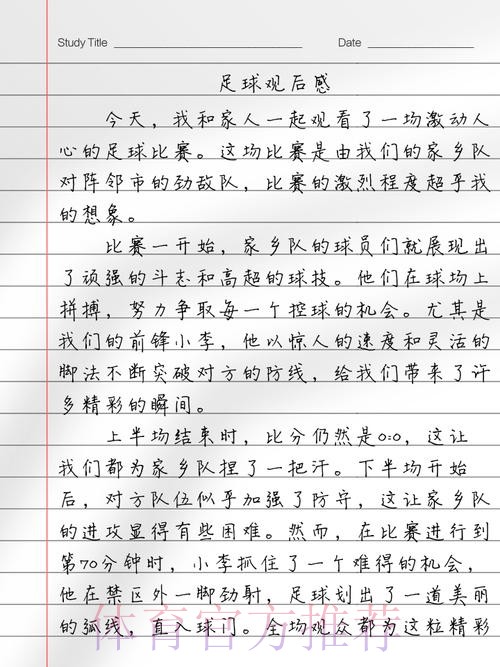 Study Title
Date
足球观后感
今天，我和家人一起观看了一场激动人
心的足球比赛。这场比赛是由我们的家乡队
对阵邻市的劲敌队，比赛的激烈程度超乎我
的想象。
比赛一开始，家乡队的球员们就展现出
了顽强的斗志和高超的球技。他们在球场上
拼搏，努力争取每一个控球的机会。尤其是
我们的前锋小李，他以惊人的速度和灵活的
脚法不断突破对方的防线，给我们带来了许
多精彩的瞬间。
上半场结束时，比分仍然是0:0，这让
我们都为家乡队捏了一把汗。下半场开始
后，对方队伍似乎加强了防守，这让家乡队
的进攻显得有些困难。然而，在比赛进行到
第70分钟时，小李抓住了一个难得的机会，
他在禁区外一脚劲射，足球划出了一道美丽
的弧线，直入球门。全场观众都为这粒精彩
体育官方推荐